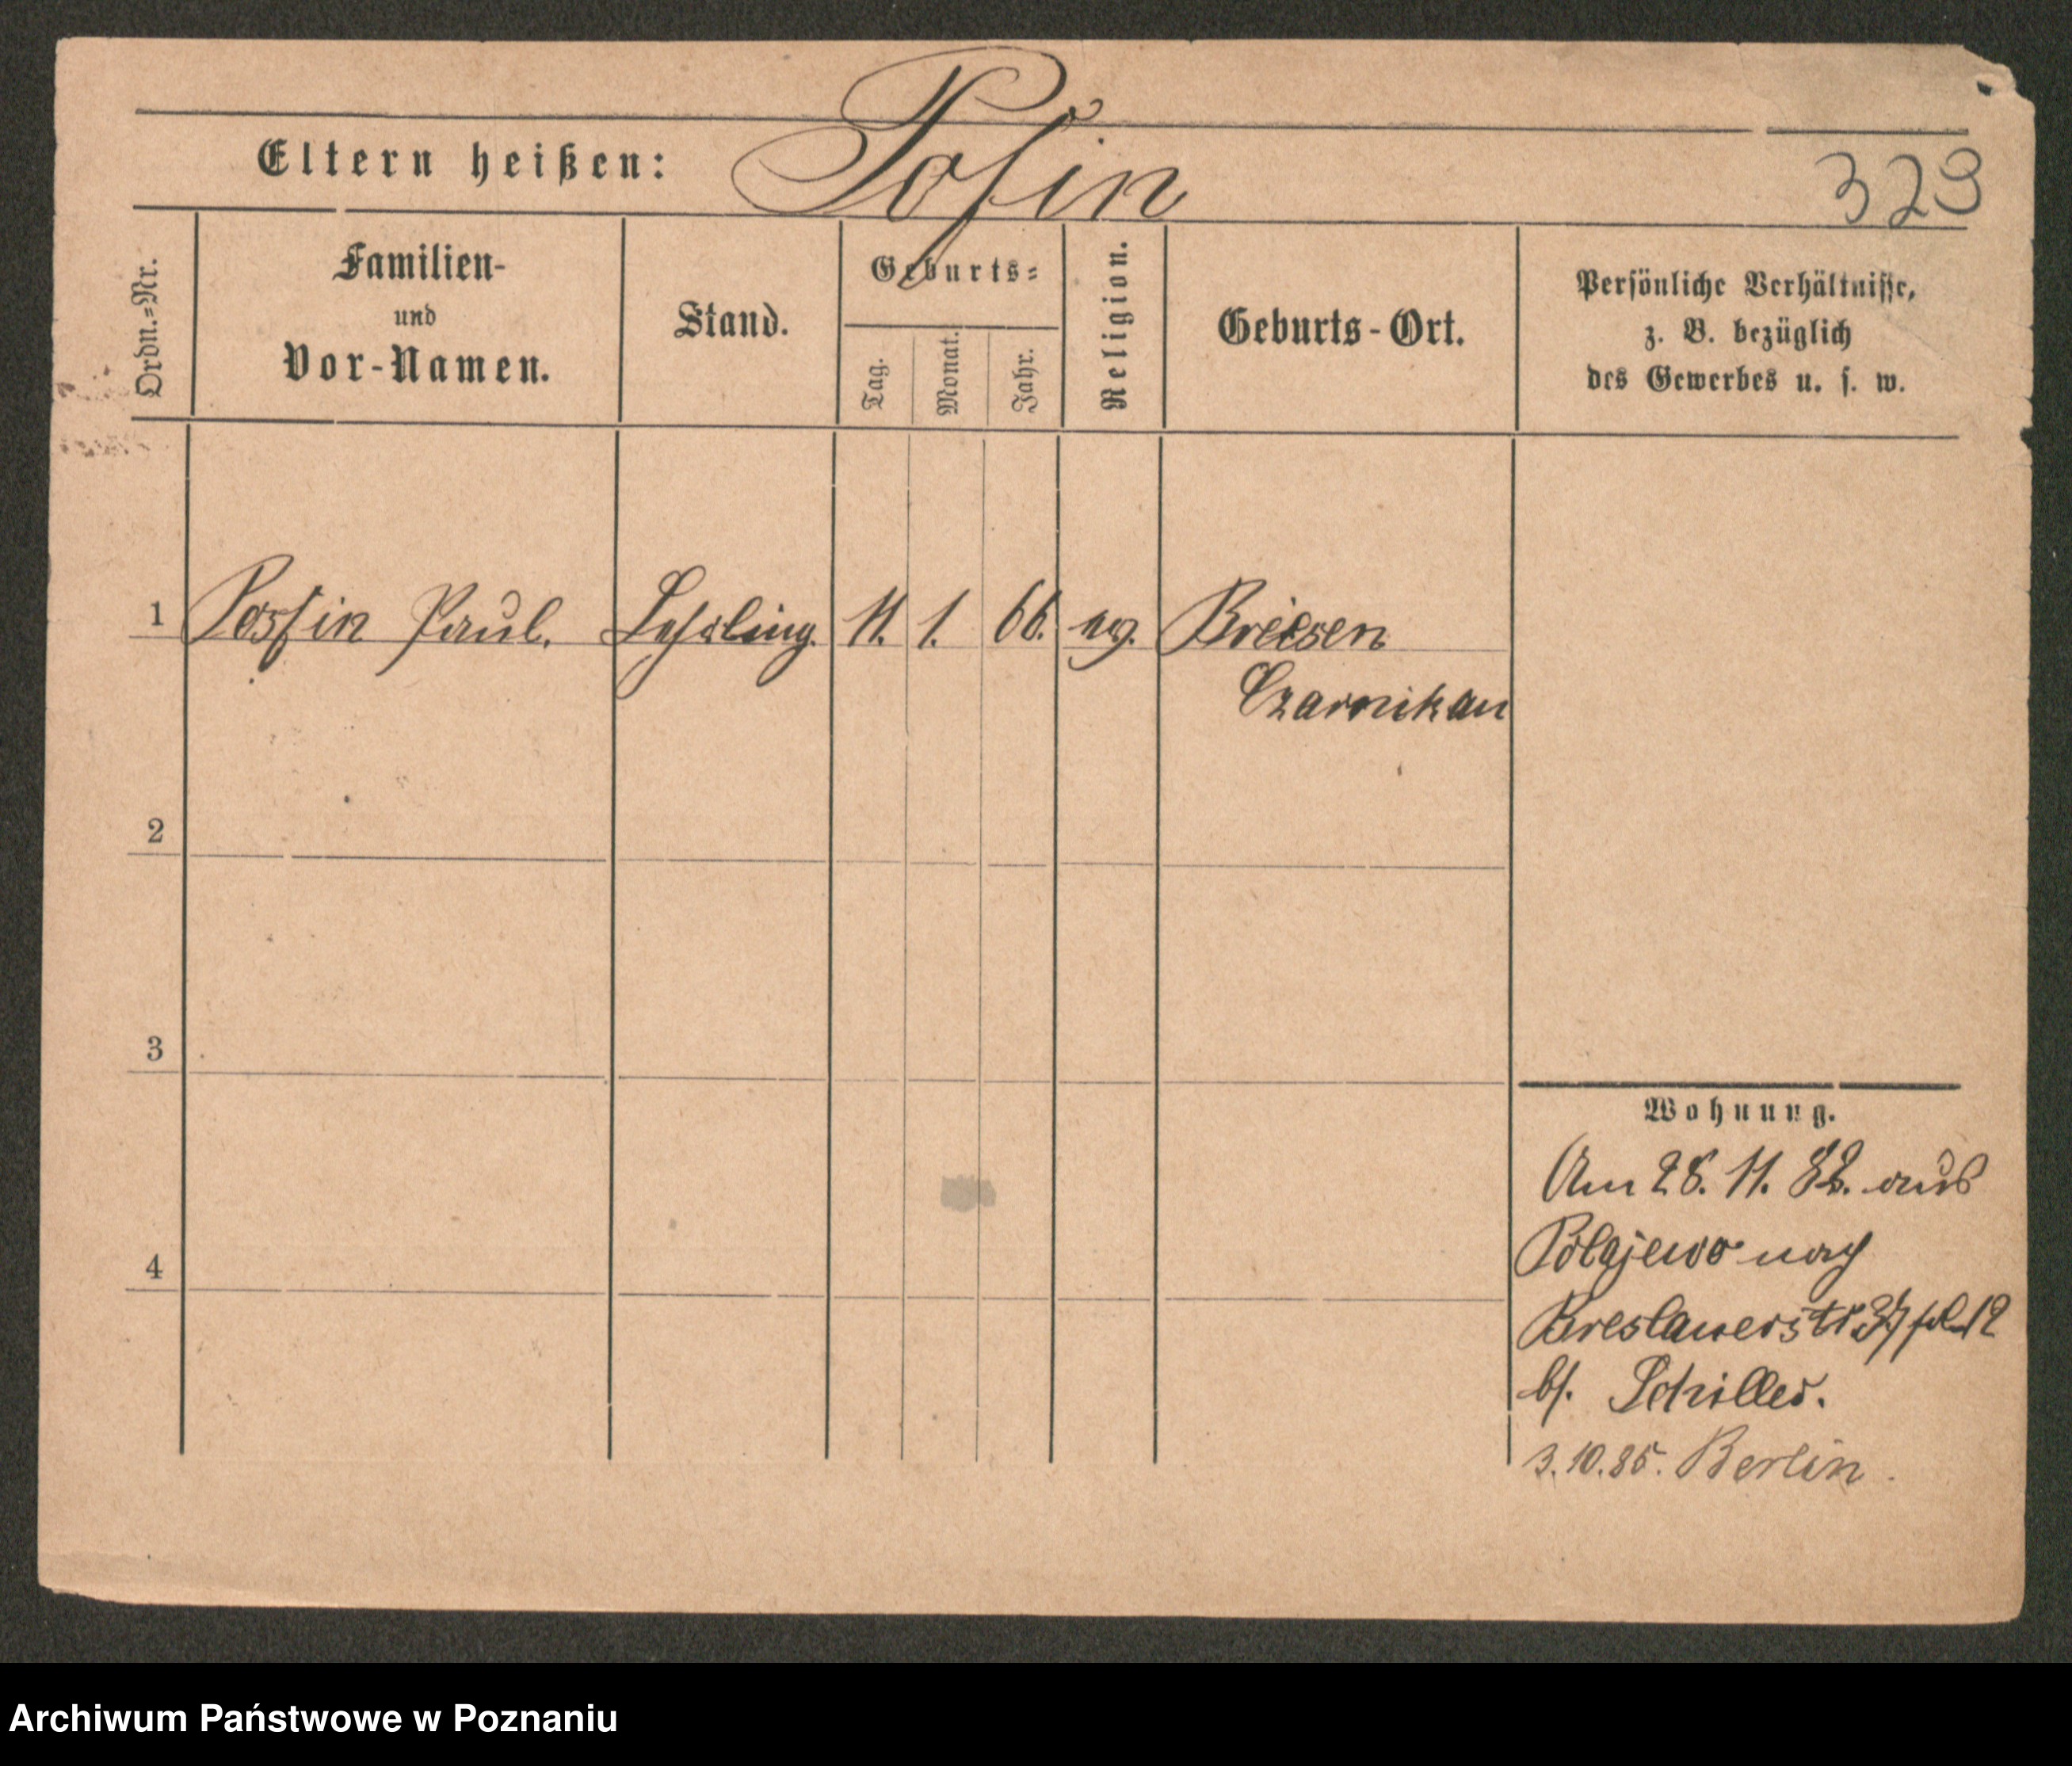 Eltern heißen: Posin
323
Ordn.=Nr.
Familien-
und
Vor-Namen.
Stand.
Geburts=
Tag.
Monat.
Jahr.
Religion.
Geburts-Ort.
Persönliche Verhältnisse,
z. B. bezüglich
des Gewerbes u. s. w.
1 Possin Paul. Lehrling. 11. 1. 66. Briesen
Czarnikau
2
3
4
Wohnung.
Am 28. 11. 82. aus
Polajewo nach
Breslauerstr 37 12
bei Schiller.
3.10.85. Berlin.
Archiwum Państwowe w Poznaniu